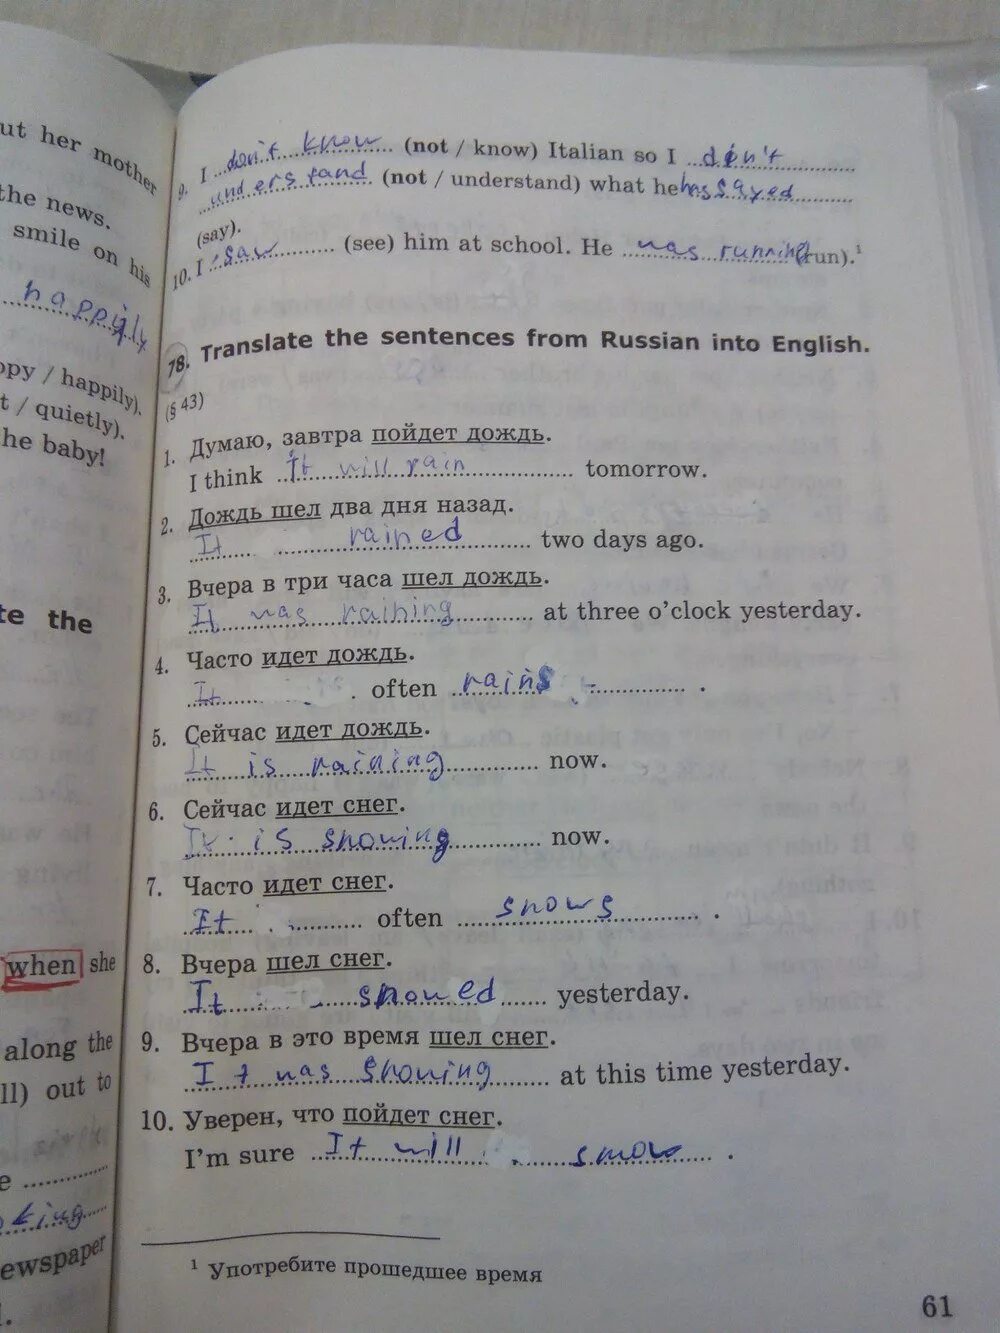 ut her mother
the news.
smile on his
happyily
ppy / happily).
t / quietly).
he baby!
te the
when she
along the
ll) out to
e
king
ewspaper
9. I don't know (not / know) Italian so I don't
understand (not / understand) what he has sayed
(say).
10. I saw (see) him at school. He was running (run).¹
78. Translate the sentences from Russian into English.
(§ 43)
1. Думаю, завтра пойдет дождь.
I think It will rain tomorrow.
2. Дождь шел два дня назад.
It rained two days ago.
3. Вчера в три часа шел дождь.
It was raining at three o'clock yesterday.
4. Часто идет дождь.
It often rains .
5. Сейчас идет дождь.
It is raining now.
6. Сейчас идет снег.
It is snowing now.
7. Часто идет снег.
It often snows .
8. Вчера шел снег.
It snowed yesterday.
9. Вчера в это время шел снег.
It was snowing at this time yesterday.
10. Уверен, что пойдет снег.
I'm sure It will snow .
¹ Употребите прошедшее время
61